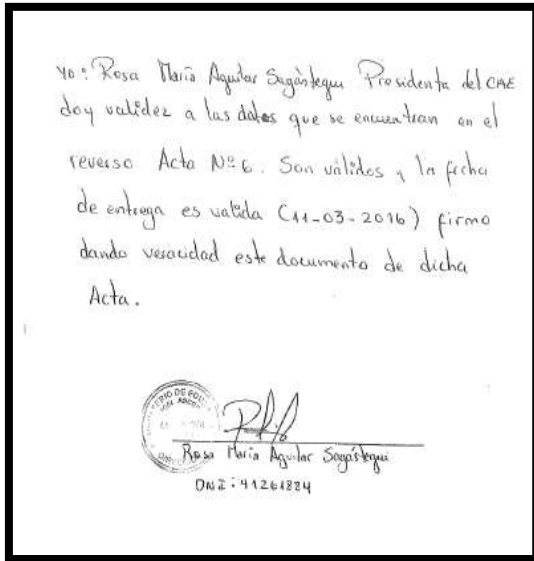 Yo: Rosa María Aguilar Sagástegui Presidenta del CAE
doy validez a las datos que se encuentran en el
reverso Acta Nº 6. Son válidos y la fecha
de entrega es valida (11-03-2016) firmo
dando veracidad este documento de dicha
Acta.
RIO DE EDU
Rosa María Aguilar Sagástegui
DNI: 41261884